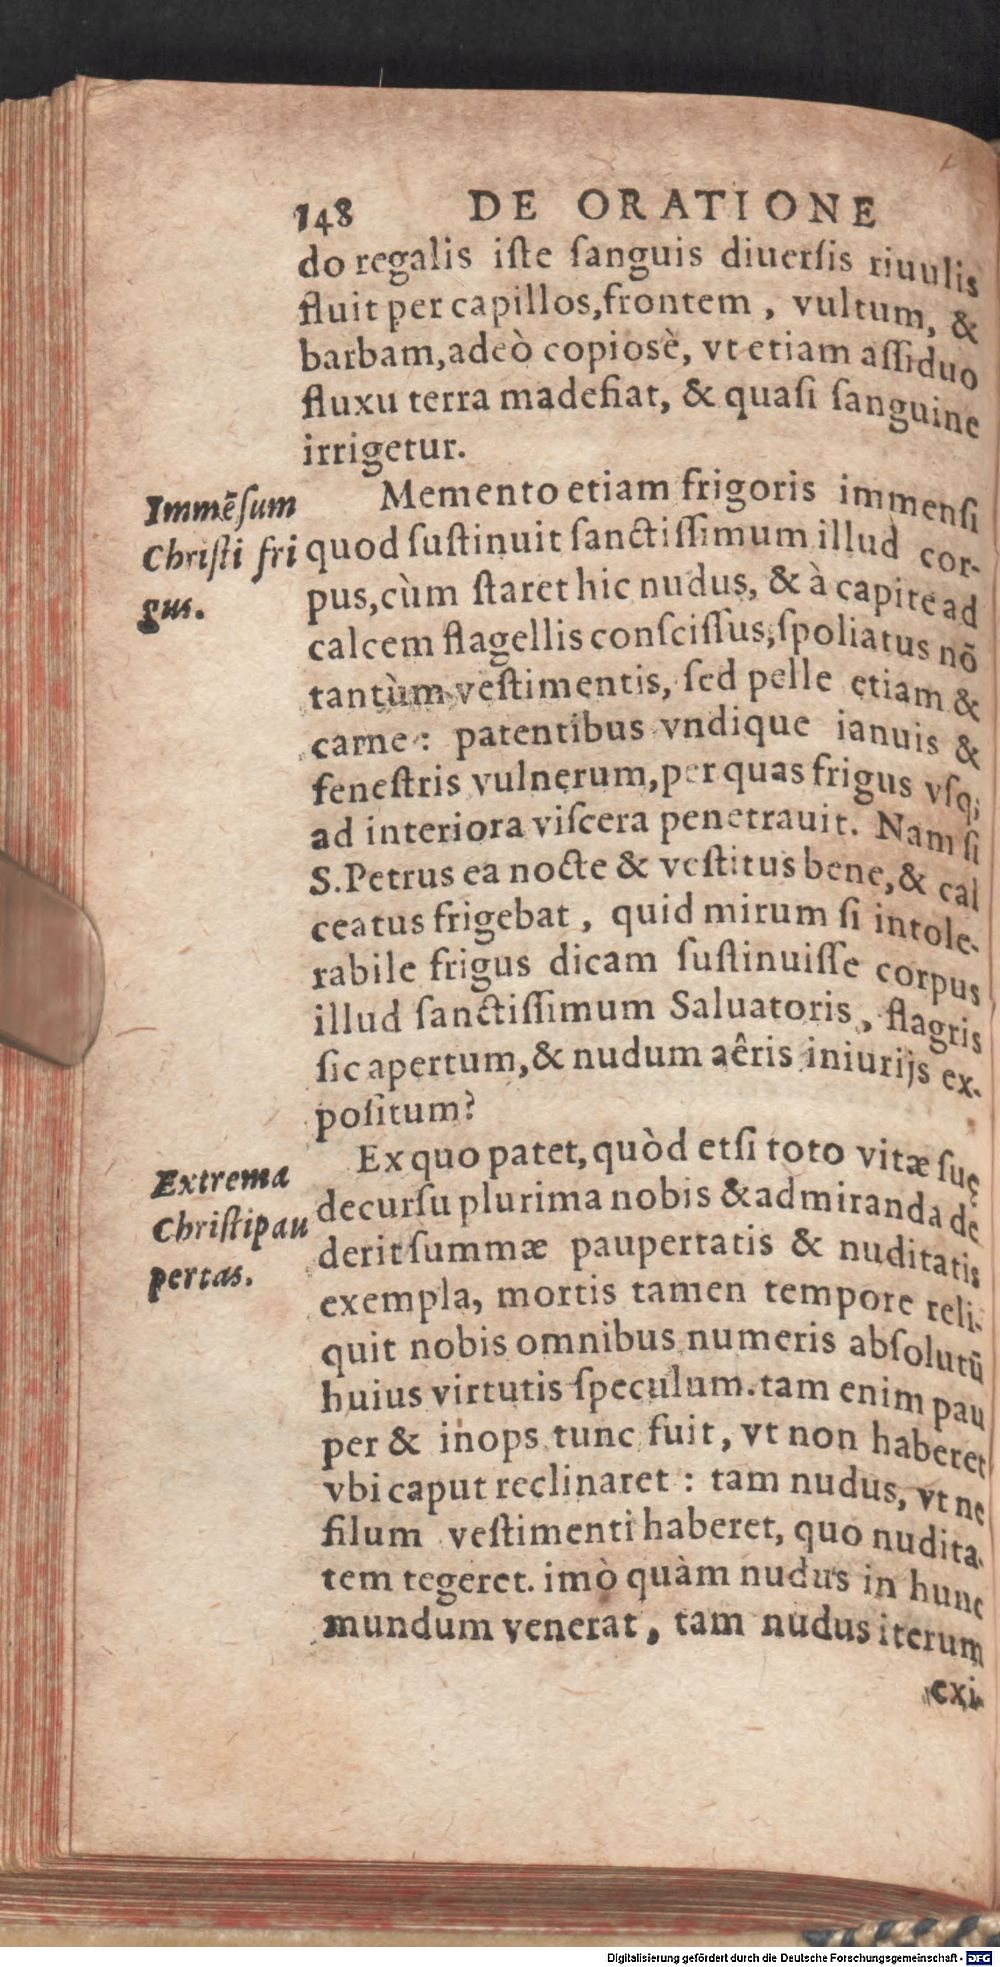 148 DE ORATIONE
do regalis iſte ſanguis diuerſis riuulis
fluit per capillos, frontem, vultum, &
barbam, adeò copiosè, vt etiam aſſiduo
fluxu terra madefiat, & quaſi ſanguine
irrigetur.
Memento etiam frigoris immenſi
Immẽſum
Chriſti fri
gus.
quod ſuſtinuit ſanctiſſimum illud cor-
pus, cùm ſtaret hic nudus, & à capite ad
calcem flagellis conſciſſus, ſpoliatus nõ
tantùm veſtimentis, ſed pelle etiam &
carne: patentibus vndique ianuis &
feneſtris vulnerum, per quas frigus vſq;
ad interiora viſcera penetrauit. Nam ſi
S. Petrus ea nocte & veſtitus bene, & cal
ceatus frigebat, quid mirum ſi intole-
rabile frigus dicam ſuſtinuiſſe corpus
illud ſanctiſſimum Saluatoris, flagris
ſic apertum, & nudum aêris iniurijs ex-
poſitum?
Ex quo patet, quòd etſi toto vitæ ſuę
Extrema
Chriſti pau
pertas.
decurſu plurima nobis & admiranda de
derit ſummæ paupertatis & nuditatis
exempla, mortis tamen tempore reli-
quit nobis omnibus numeris abſolutũ
huius virtutis ſpeculum. tam enim pau
per & inops tunc fuit, vt non haberet
vbi caput reclinaret: tam nudus, vt ne
filum veſtimenti haberet, quo nudita-
tem tegeret. imò quàm nudus in hunc
mundum venerat, tam nudus iterum
exi-
Digitalisierung gefördert durch die Deutsche Forschungsgemeinschaft - DFG